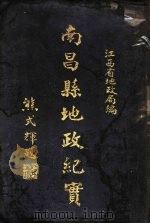 江西省地政局編
南昌縣地政紀實
熊式輝